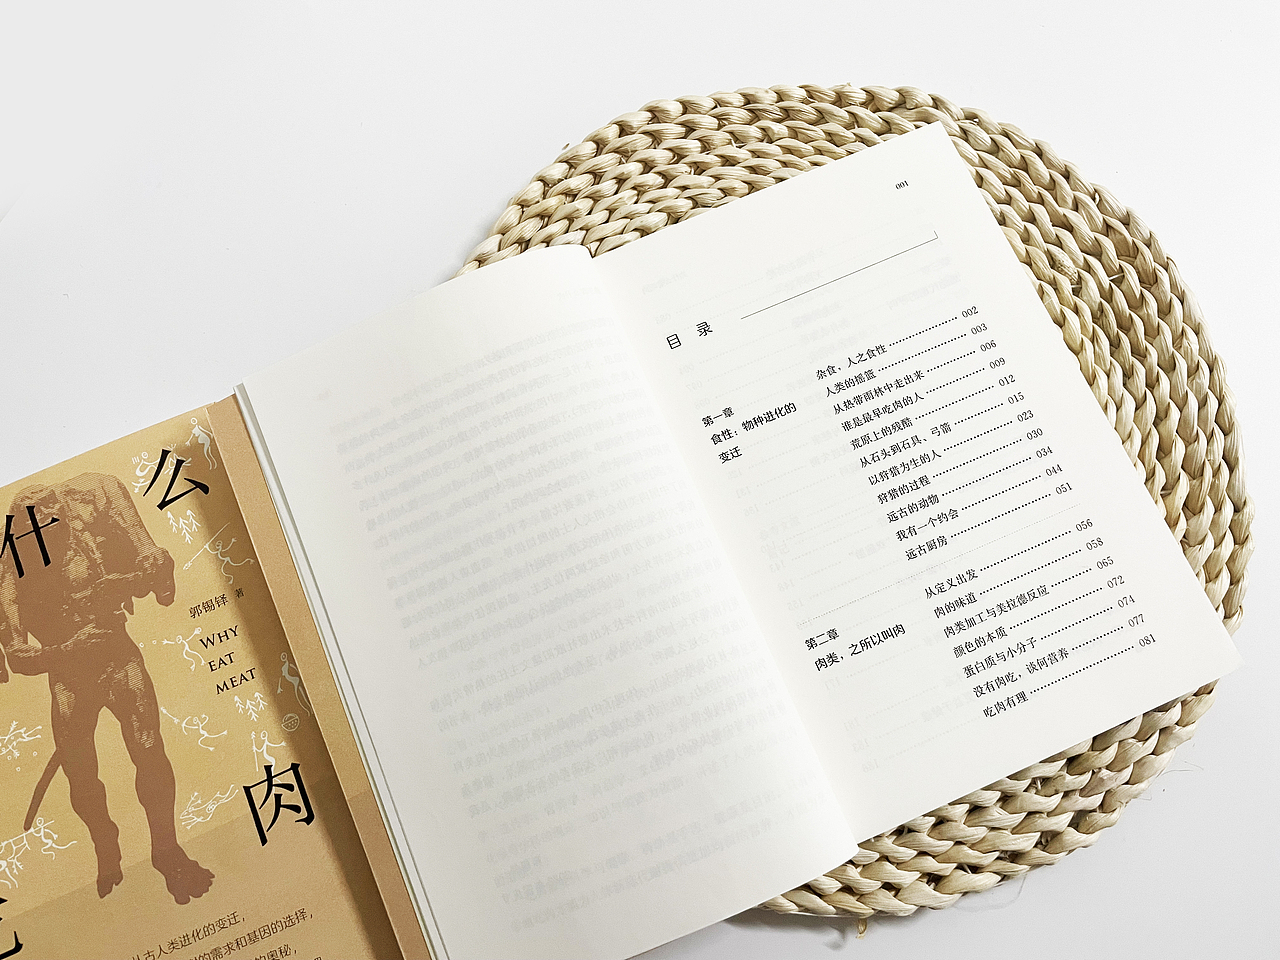 什
么
肉
郭锡铎 著
WHY
EAT
MEAT
从古人类进化的变迁，
的需求和基因的选择，
的奥秘，
001
目 录
第一章
食性，物种进化的
变迁
杂食，人之食性 002
人类的摇篮 003
从热带雨林中走出来 006
谁是最早吃肉的人 009
荒原上的残酷 012
从石头到石具、弓箭 015
以狩猎为生的人 023
狩猎的过程 030
远古的动物 034
我有一个约会 044
远古厨房 051
第二章
肉类，之所以叫肉
从定义出发 056
肉的味道 058
肉类加工与美拉德反应 065
颜色的本质 072
蛋白质与小分子 074
没有肉吃，谈何营养 077
吃肉有理 081